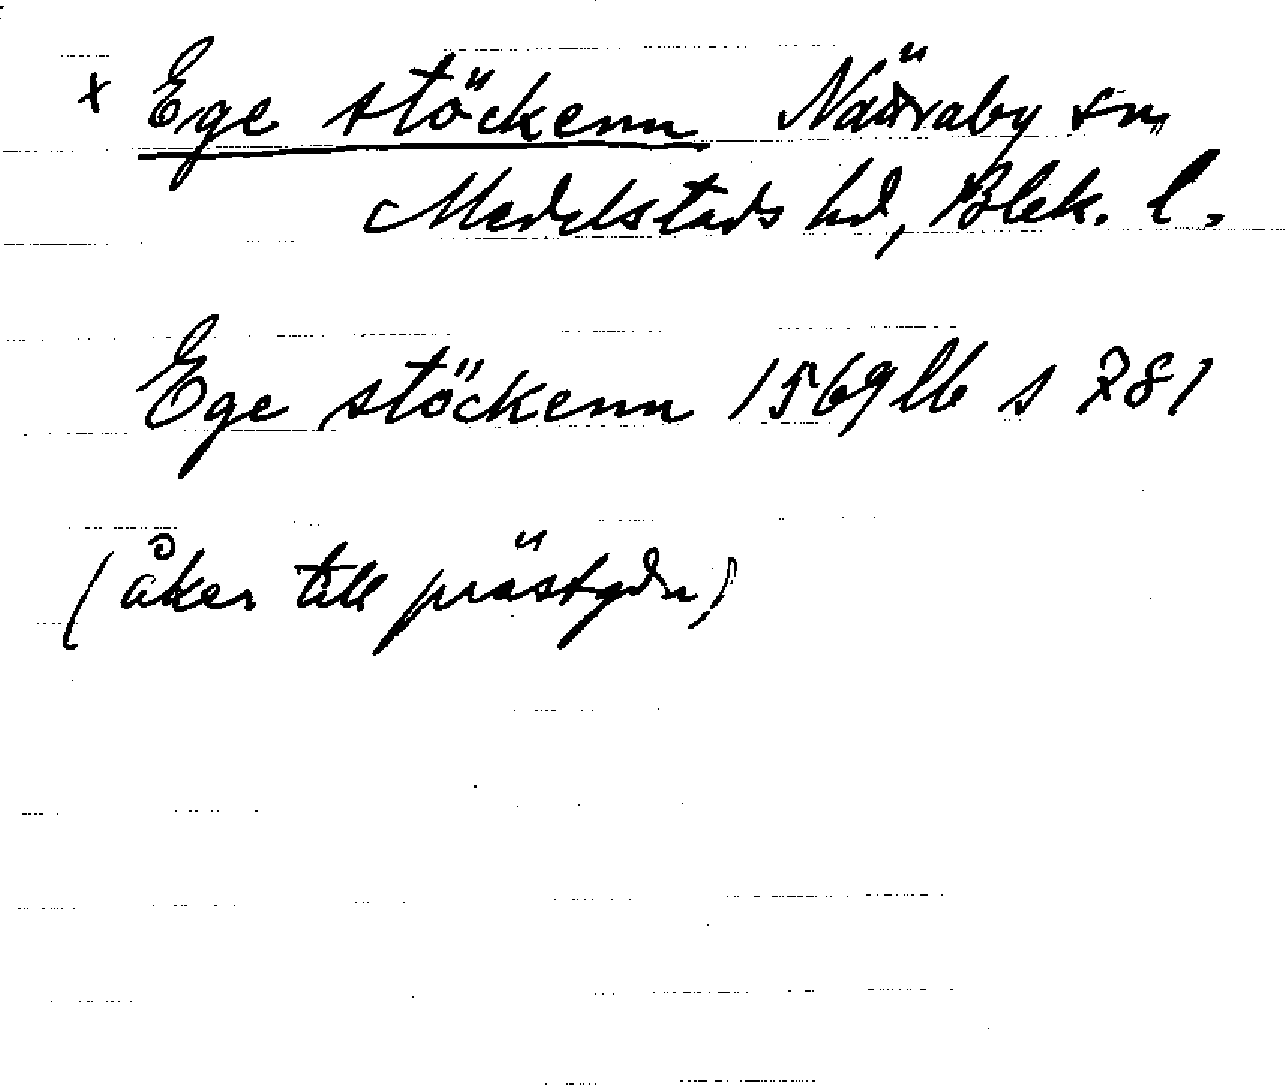 x Ege stöckenn Nättraby sn,
Medelstads hd, Blek. l.
Ege stöckenn 1569 lb s 281
(åker till prästgdn)